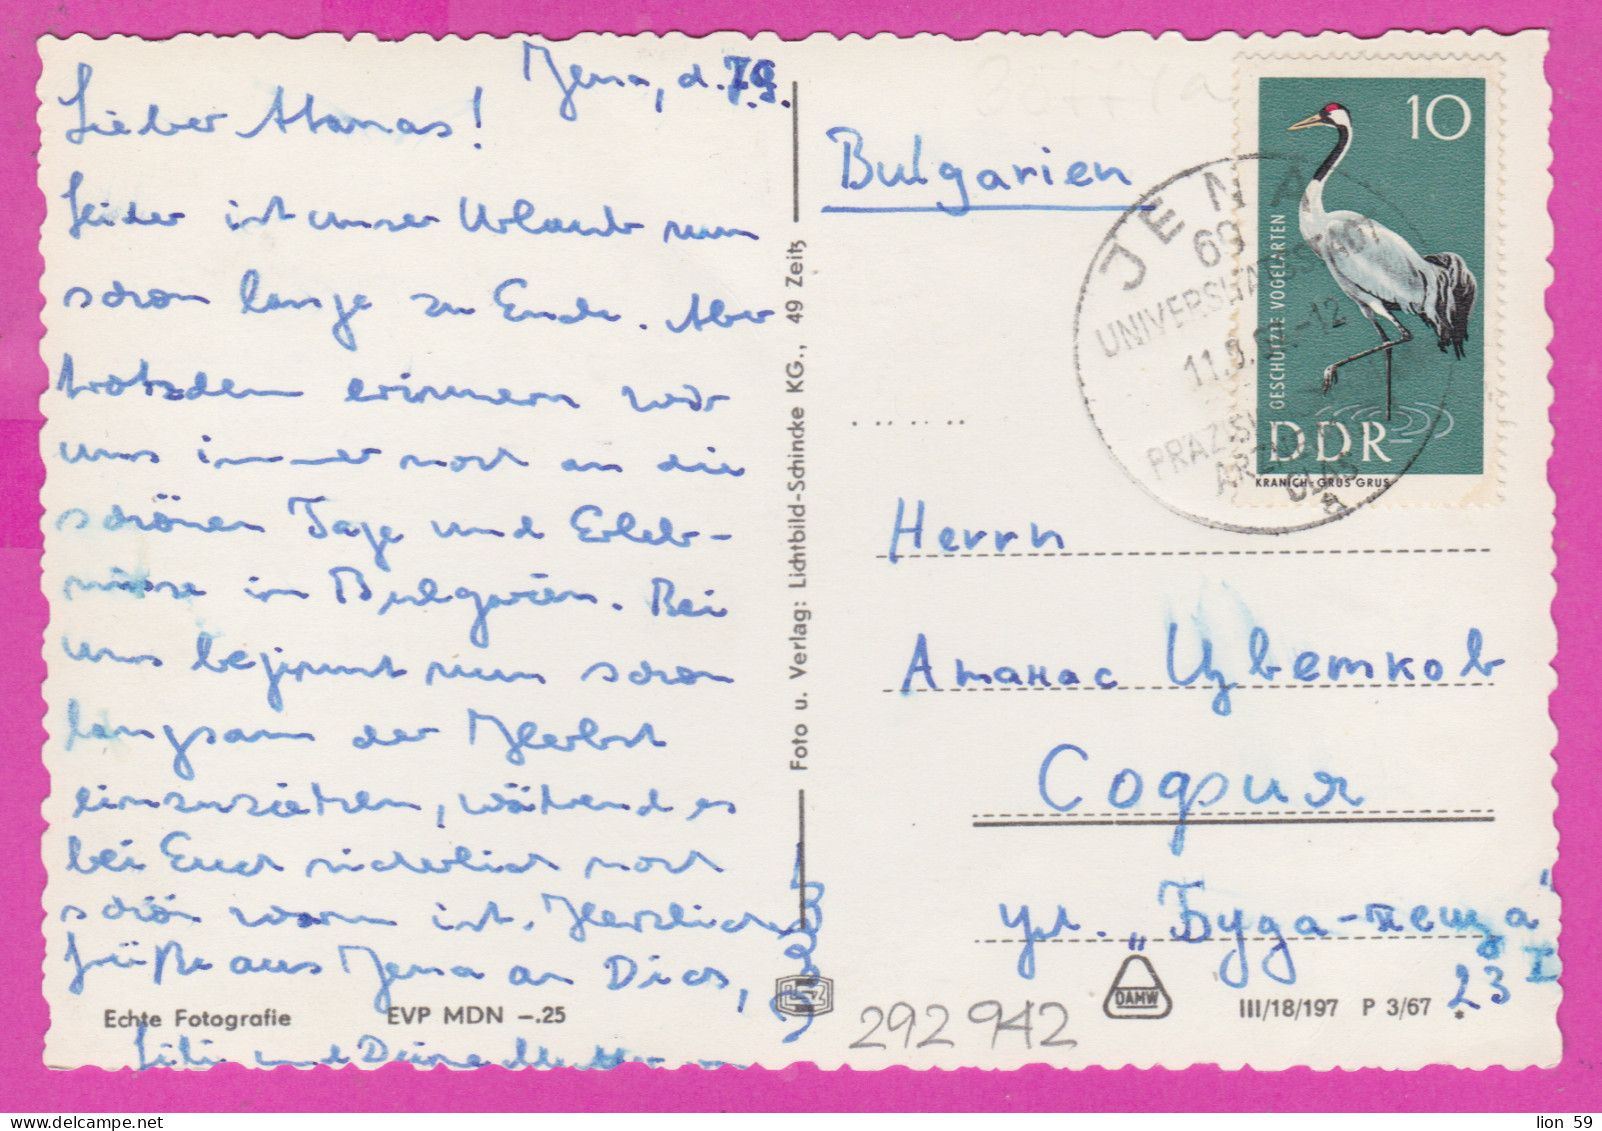 Jena, d. 7.9.
Lieber Atanas!
Leider ist unser Urlaub nun
schon lange zu Ende. Aber
trotzdem erinnern wir
uns immer noch an die
schönen Tage und Erleb-
nisse in Bulgarien. Bei
uns beginnt nun schon
langsam der Herbst
einzuziehen, während es
bei Euch sicherlich noch
schön warm ist. Herzliche
Grüße aus Jena an Dich,
und Deine Mutter
Echte Fotografie
EVP MDN –.25
Foto u. Verlag: Lichtbild-Schincke KG., 49 Zeitz
Bulgarien
10
GESCHÜTZTE VOGELARTEN
DDR
KRANICH · GRUS GRUS
JENA
69
UNIVERSITÄTSSTADT
Herrn
Атанас Цветков
София
ул. „Буда-пеща"
23 I
DAMW
III/18/197 P 3/67 *
292 942
lion 59